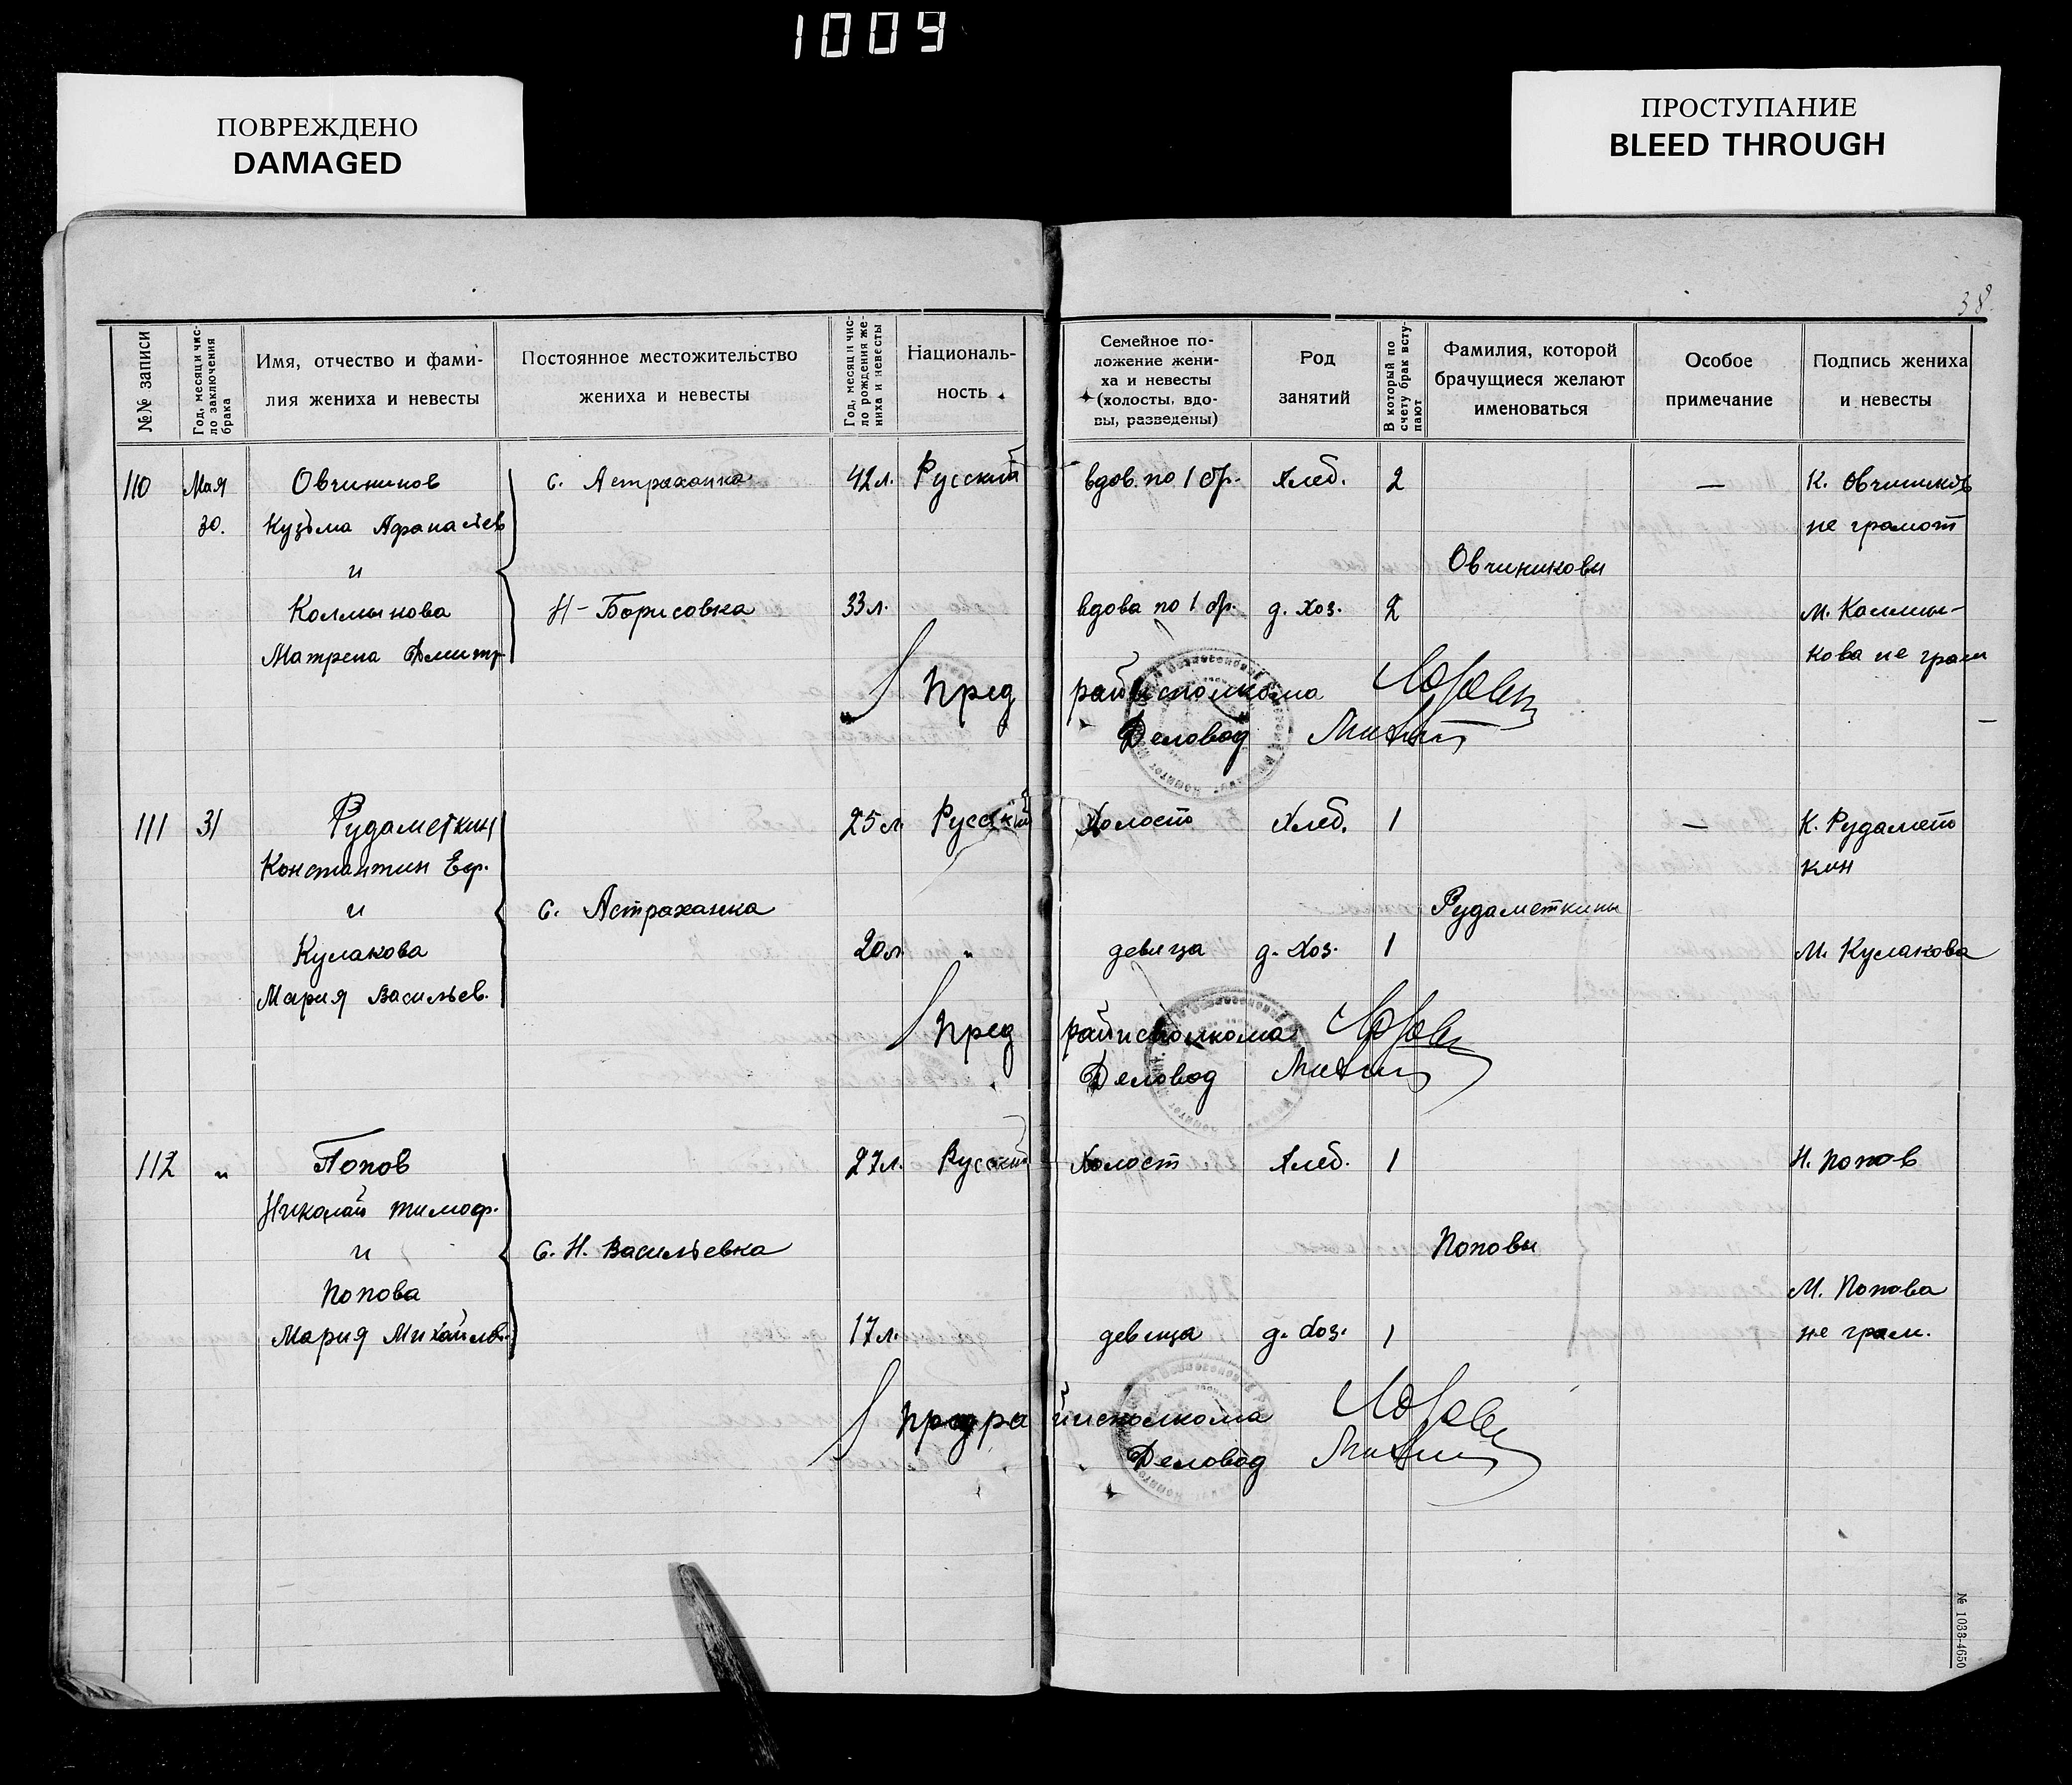 1009
ПОВРЕЖДЕНО
DAMAGED
ПРОСТУПАНИЕ
BLEED THROUGH
38
№№ записи
Год, месяц и чис-
ло заключения
брака
Имя, отчество и фами-
лия жениха и невесты
Постоянное местожительство
жениха и невесты
Год, месяц и чис-
ло рождения же-
ниха и невесты
Националь-
ность
Семейное по-
ложение жени-
ха и невесты
(холосты, вдо-
вы, разведены)
Род
занятий
В который по
счету брак всту-
пают
Фамилия, которой
брачущиеся желают
именоваться
Особое
примечание
Подпись жениха
и невесты
110 Мая Овчинников с. Астраханка 42 л. Русский вдов. по 1 бр. Хлеб. 2 — К. Овчинников
30. Кузьма Афанасьев не грамот
и Овчинниковы
Колмыкова Н-Борисовка 33 л. вдова по 1 бр. д. хоз. 2 М. Колмы-
Матрена Дмитр кова не грам
Пред райисполкома
Деловод
111 31 Рудаметкин 25 л. Русский Холост Хлеб. 1 — К. Рудамет
Константин Еф. кин
и с. Астраханка Рудаметкины
Кулакова 20 л. „ девица д. Хоз. 1 М. Кулакова
Мария Васильев.
Пред райисполкома
Деловод
112 „ Попов 27 л. Русский Холост Хлеб. 1 Н. Попов
Николай Тимоф.
и с. Н. Васильевка Поповы
Попова М. Попова
Мария Михайлов. 17 л. девица д. Хоз. 1 не грам.
Пред райисполкома
Деловод
№ 1033-4650